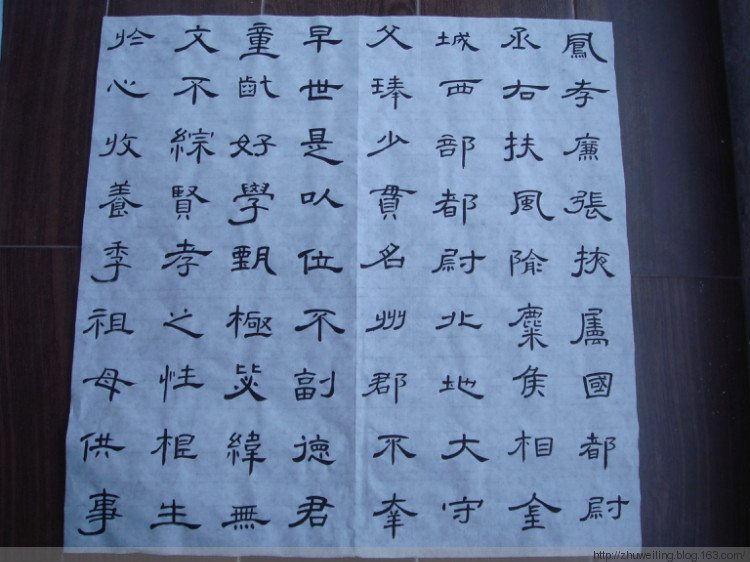 鳳孝廉張掖属國都尉
丞右扶風隃麋侯相金
城西部都尉北地大守
父琫少貫名州郡不幸
早世是以位不副徳君
童齔好學甄極毖緯無
文不綜賢孝之性根生
於心收養季祖母供事
http://zhuweiling.blog.163.com/